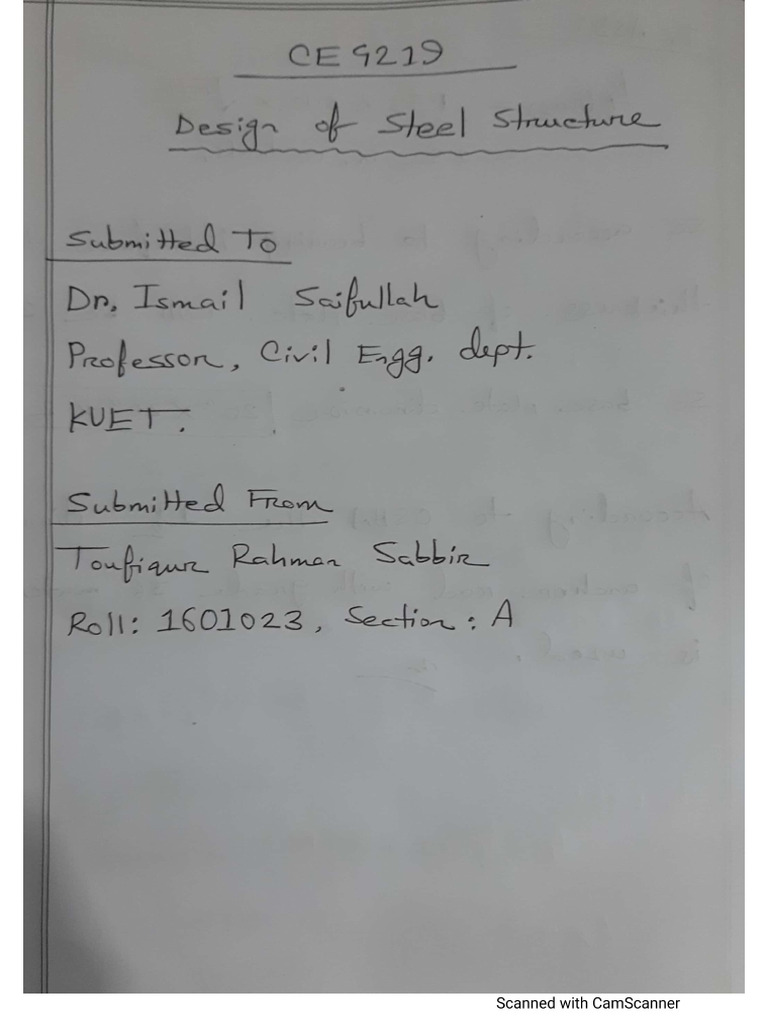 CE 4219
Design of Steel Structure
Submitted To
Dr. Ismail Saifullah
Professor, Civil Engg. dept.
KUET.
Submitted From
Toufiqur Rahman Sabbir
Roll: 1601023, Section: A
Scanned with CamScanner